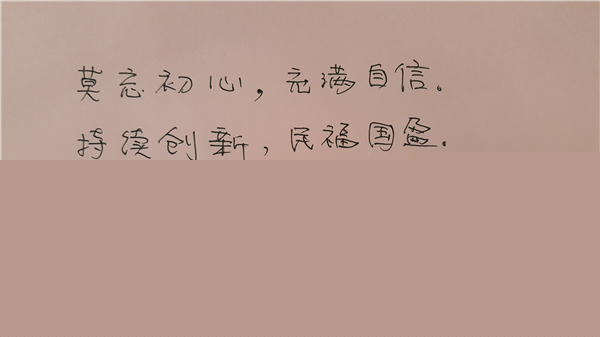 莫忘初心，充满自信。
持续创新，民福国盈.